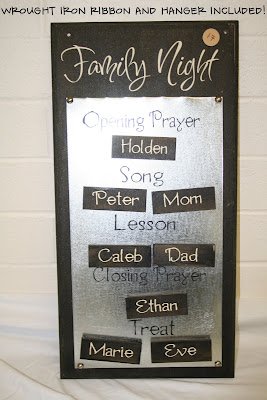 WROUGHT IRON RIBBON AND HANGER INCLUDED!
Family Night
Opening Prayer
Holden
Song
Peter Mom
Lesson
Caleb Dad
Closing Prayer
Ethan
Treat
Marie Eve